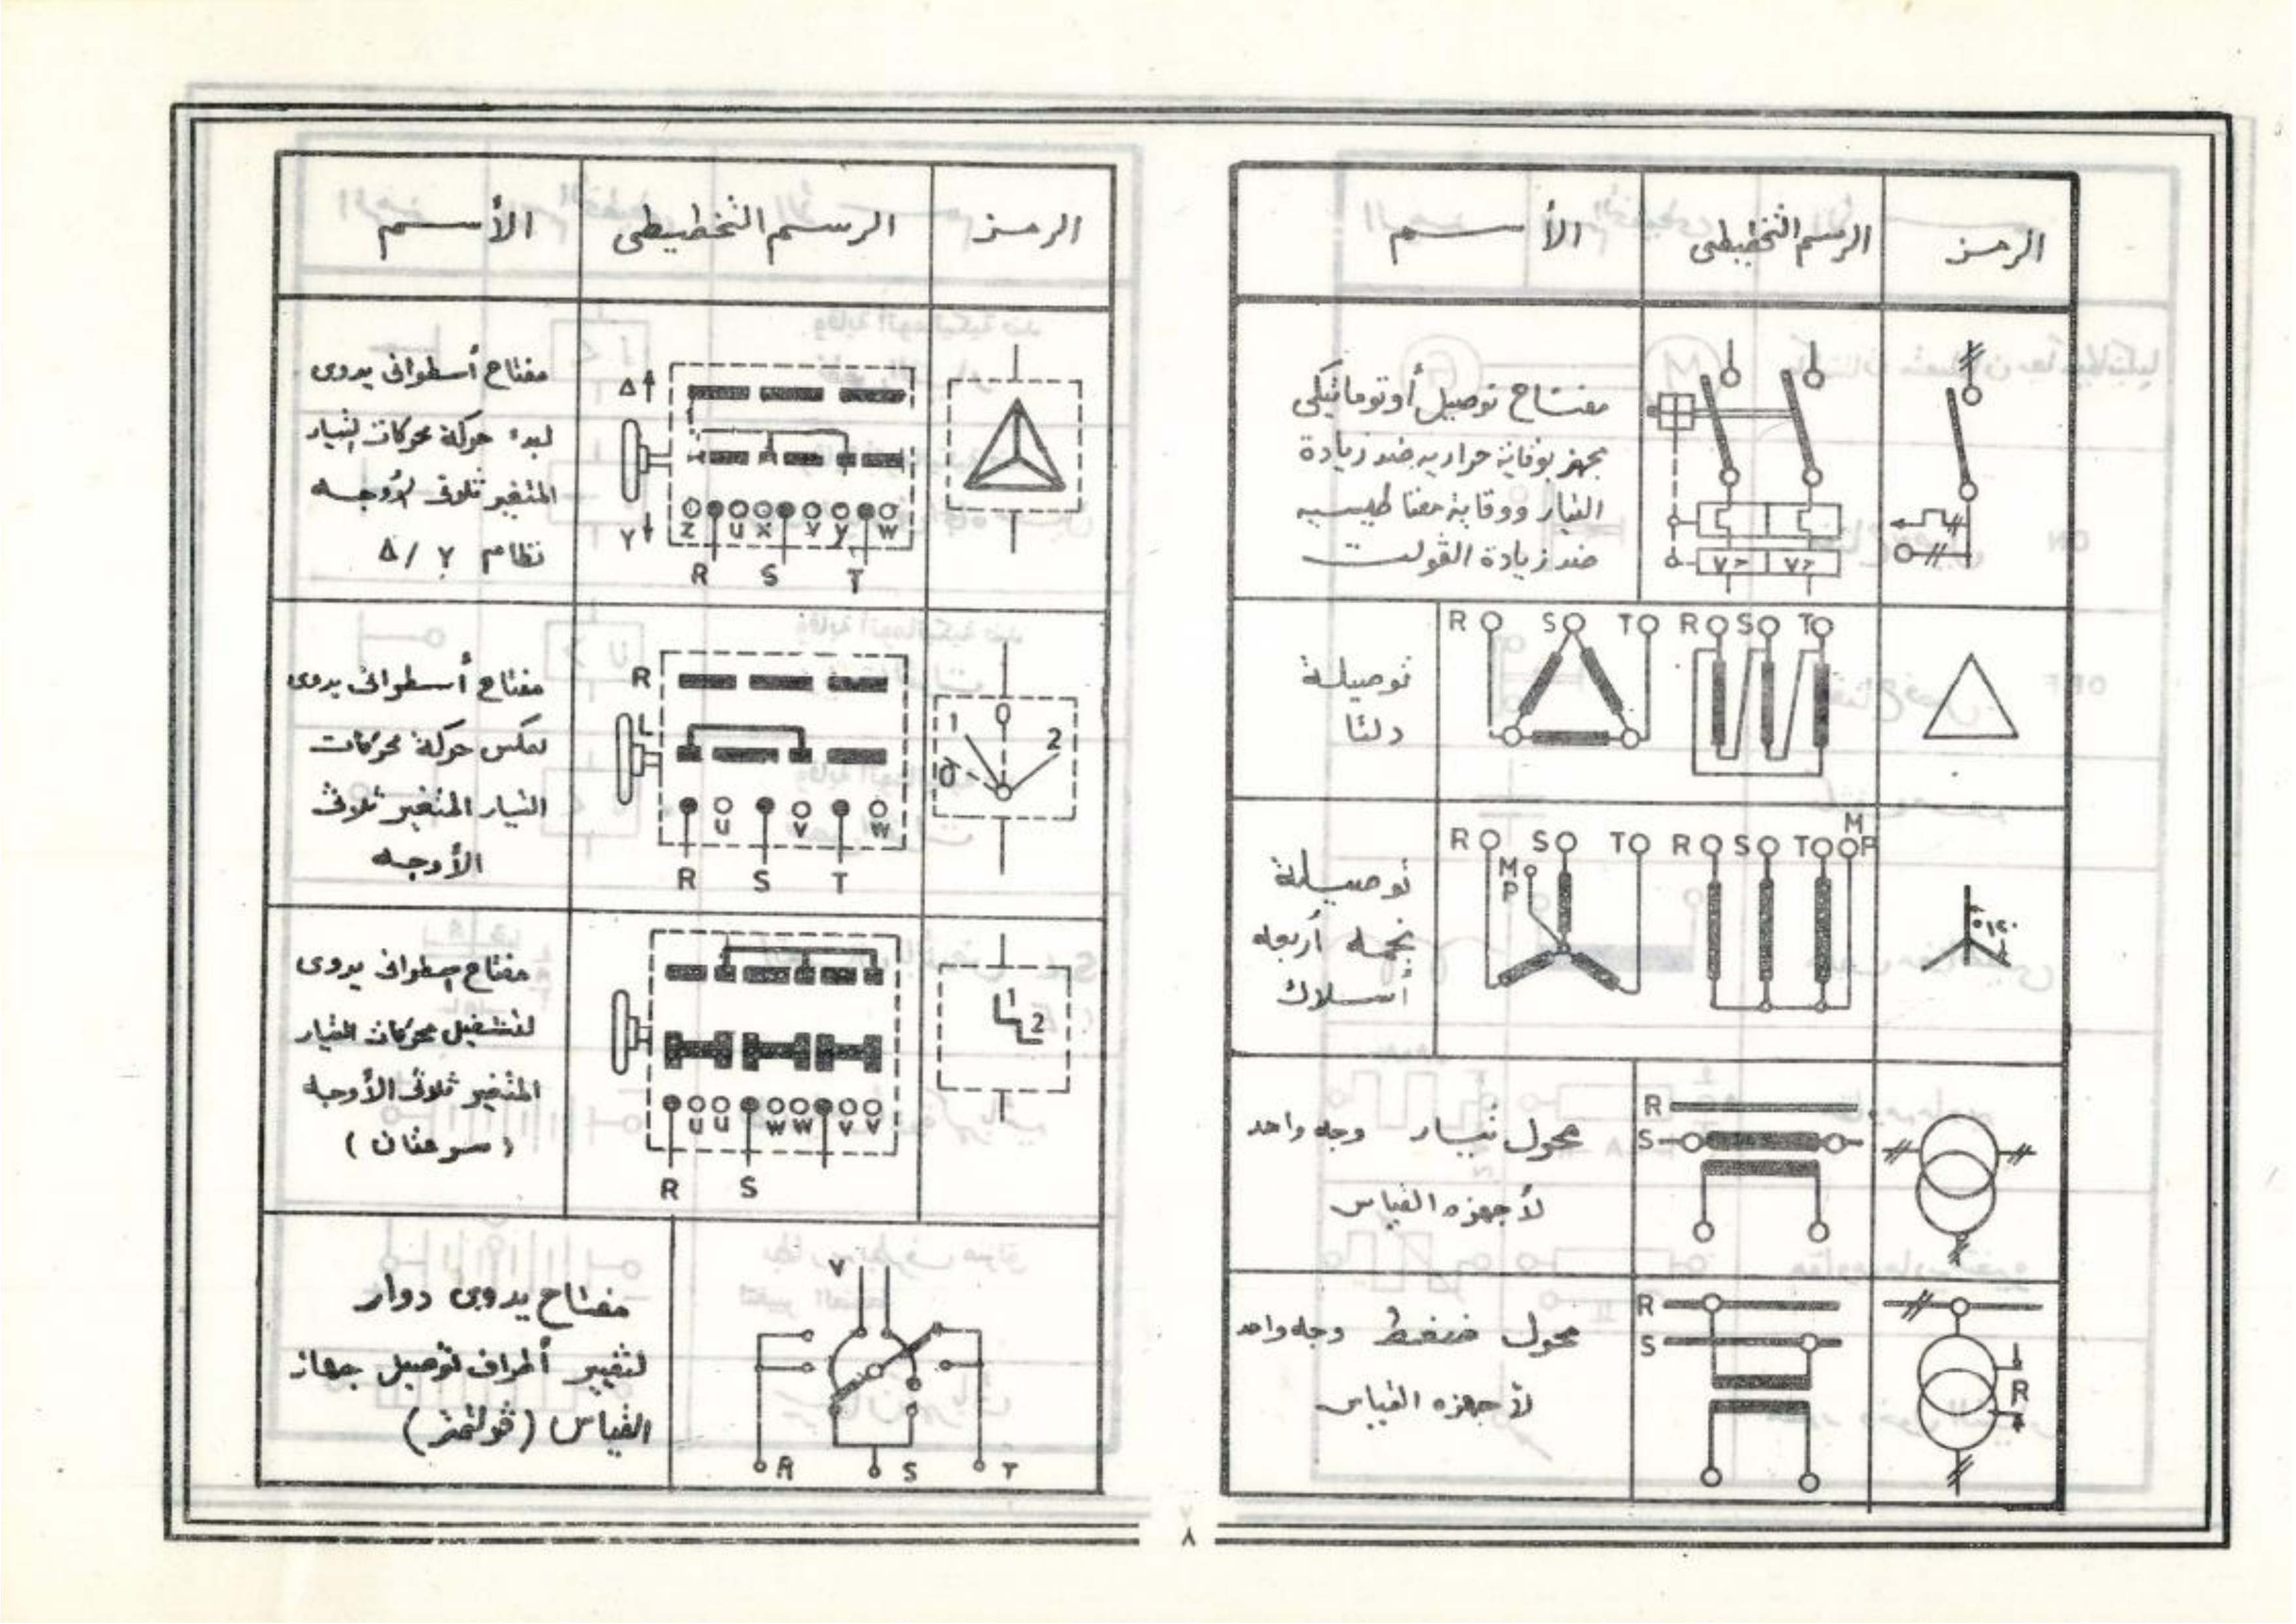 الرمز
الرسم التخطيطى
الأسم
مفتاح توصيل أوتوماتيكى
مجهز بوقاية حرارية ضد زيادة
التيار ووقاية مغناطيسية
ضد زيادة الڤولت
V> V>
R S T R S T
توصيلة
دلتا
R S T R S T M P
M P
توصيلة
نجمه أربعه
أسلاك
١٢٠°
R
S
محول تيار وجه واحد
لأجهزه القياس
R
S
R
محول ضغط وجه واحد
لأجهزه القياس
الرمز
الرسم التخطيطى
الأسم
Δ
Y
Z U X V Y W
R S T
مفتاح أسطوانى يدوى
لبدء حركة محركات التيار
المتغير ثلاثى الأوجه
نظام Δ / Y
1 0 2
0
R
L
U V W
R S T
مفتاح أسطوانى يدوى
لعكس حركة محركات
التيار المتغير ثلاثى
الأوجه
1
2
U U W W V V
R S
مفتاح إسطوانى يدوى
لتشغيل محركات التيار
المتغير ثلاثى الأوجه
(سرعتان)
V
R S T
مفتاح يدوى دوار
لتغيير أطراف توصيل جهاز
القياس (ڤولتمتر)
٨